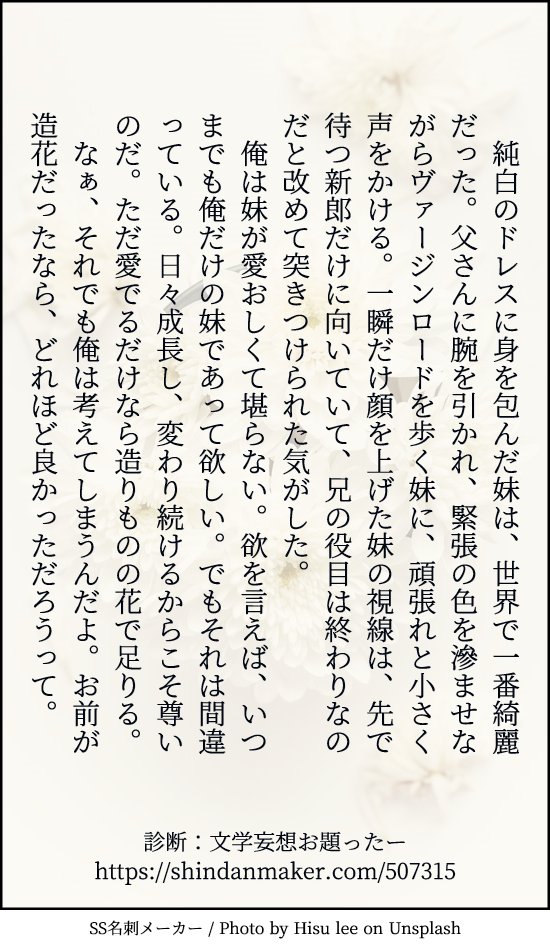 純白のドレスに身を包んだ妹は、世界で一番綺麗
だった。父さんに腕を引かれ、緊張の色を滲ませな
がらヴァージンロードを歩く妹に、頑張れと小さく
声をかける。一瞬だけ顔を上げた妹の視線は、先で
待つ新郎だけに向いていて、兄の役目は終わりなの
だと改めて突きつけられた気がした。
俺は妹が愛おしくて堪らない。欲を言えば、いつ
までも俺だけの妹であって欲しい。でもそれは間違
っている。日々成長し、変わり続けるからこそ尊い
のだ。ただ愛でるだけなら造りものの花で足りる。
なぁ、それでも俺は考えてしまうんだよ。お前が
造花だったなら、どれほど良かっただろうって。
診断：文学妄想お題ったー
https://shindanmaker.com/507315
SS名刺メーカー / Photo by Hisu lee on Unsplash